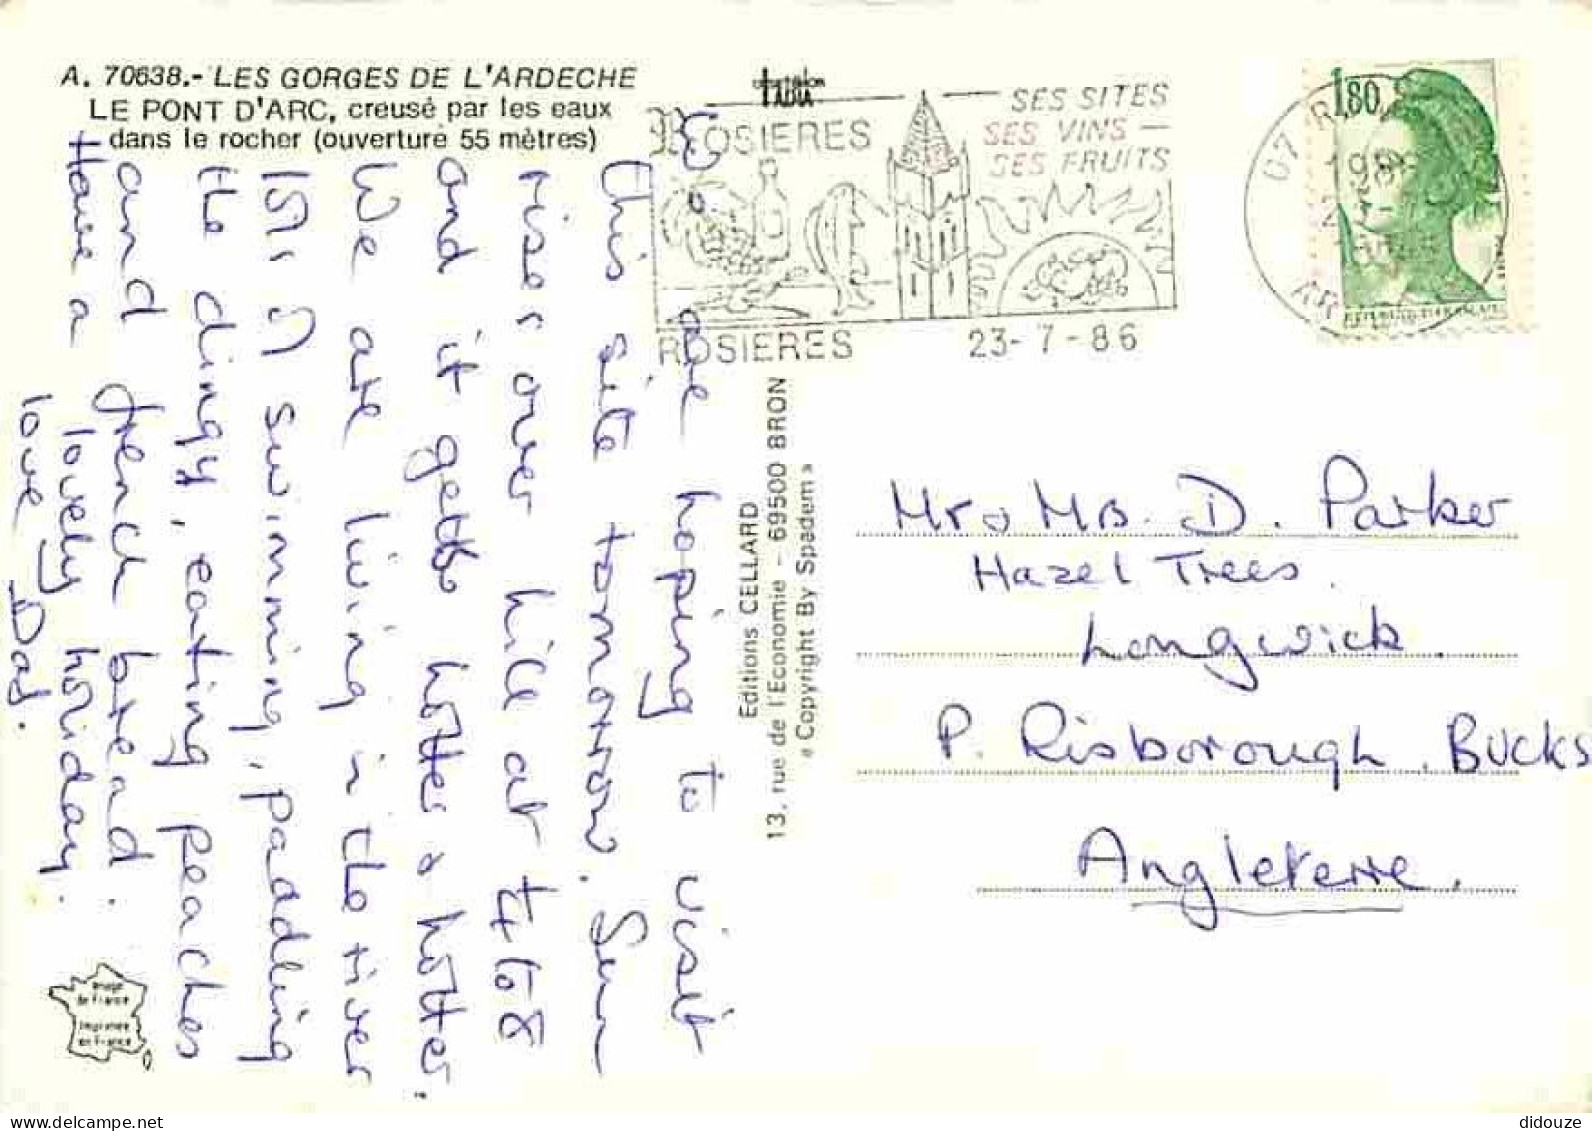 A. 70638.- LES GORGES DE L'ARDECHE
LE PONT D'ARC, creusé par les eaux
dans le rocher (ouverture 55 mètres)
ROSIERES
SES SITES
SES VINS —
SES FRUITS
ROSIERES
23-7-86
1,80
We are hoping to visit
this site tomorrow. Sun
rises over hill at ¼ to 8
and it gets hotter & hotter.
We are living in the river
swimming, paddling
the dingy, eating peaches
and french bread.
Have a lovely holiday.
love Dad.
Editions CELLARD
13, rue de l'Economie - 69500 BRON
« Copyright By Spadem »
Mr & Mrs. D. Parker
Hazel Trees.
Longwick.
P. Risborough. BUCKS
Angleterre.
Image
de France
Imprimée
en France
didouze